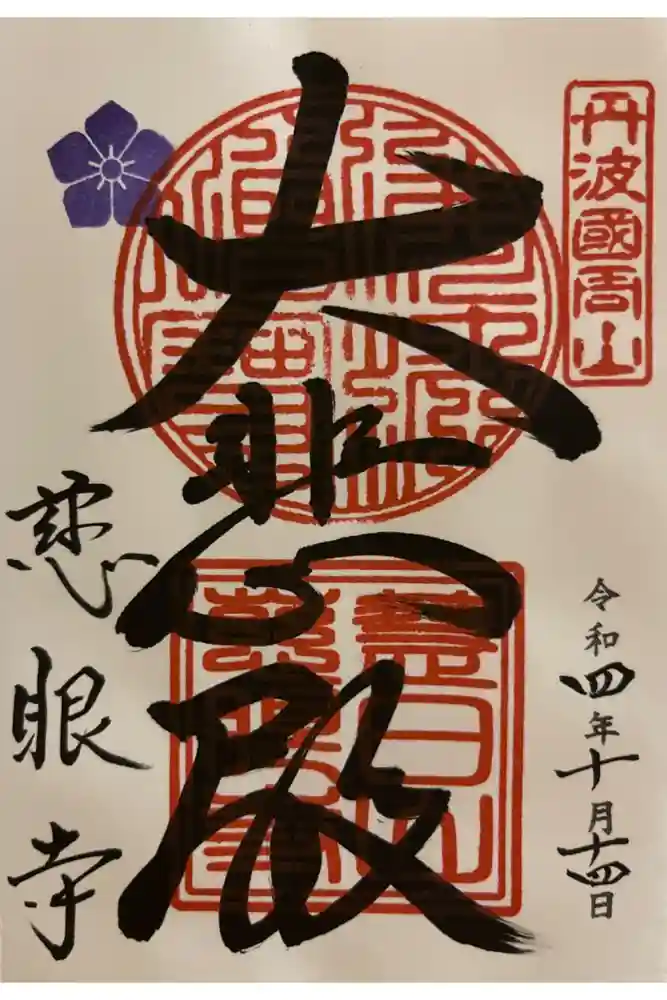 丹波國周山
令和四年十月十四日
大悲殿
慈眼寺